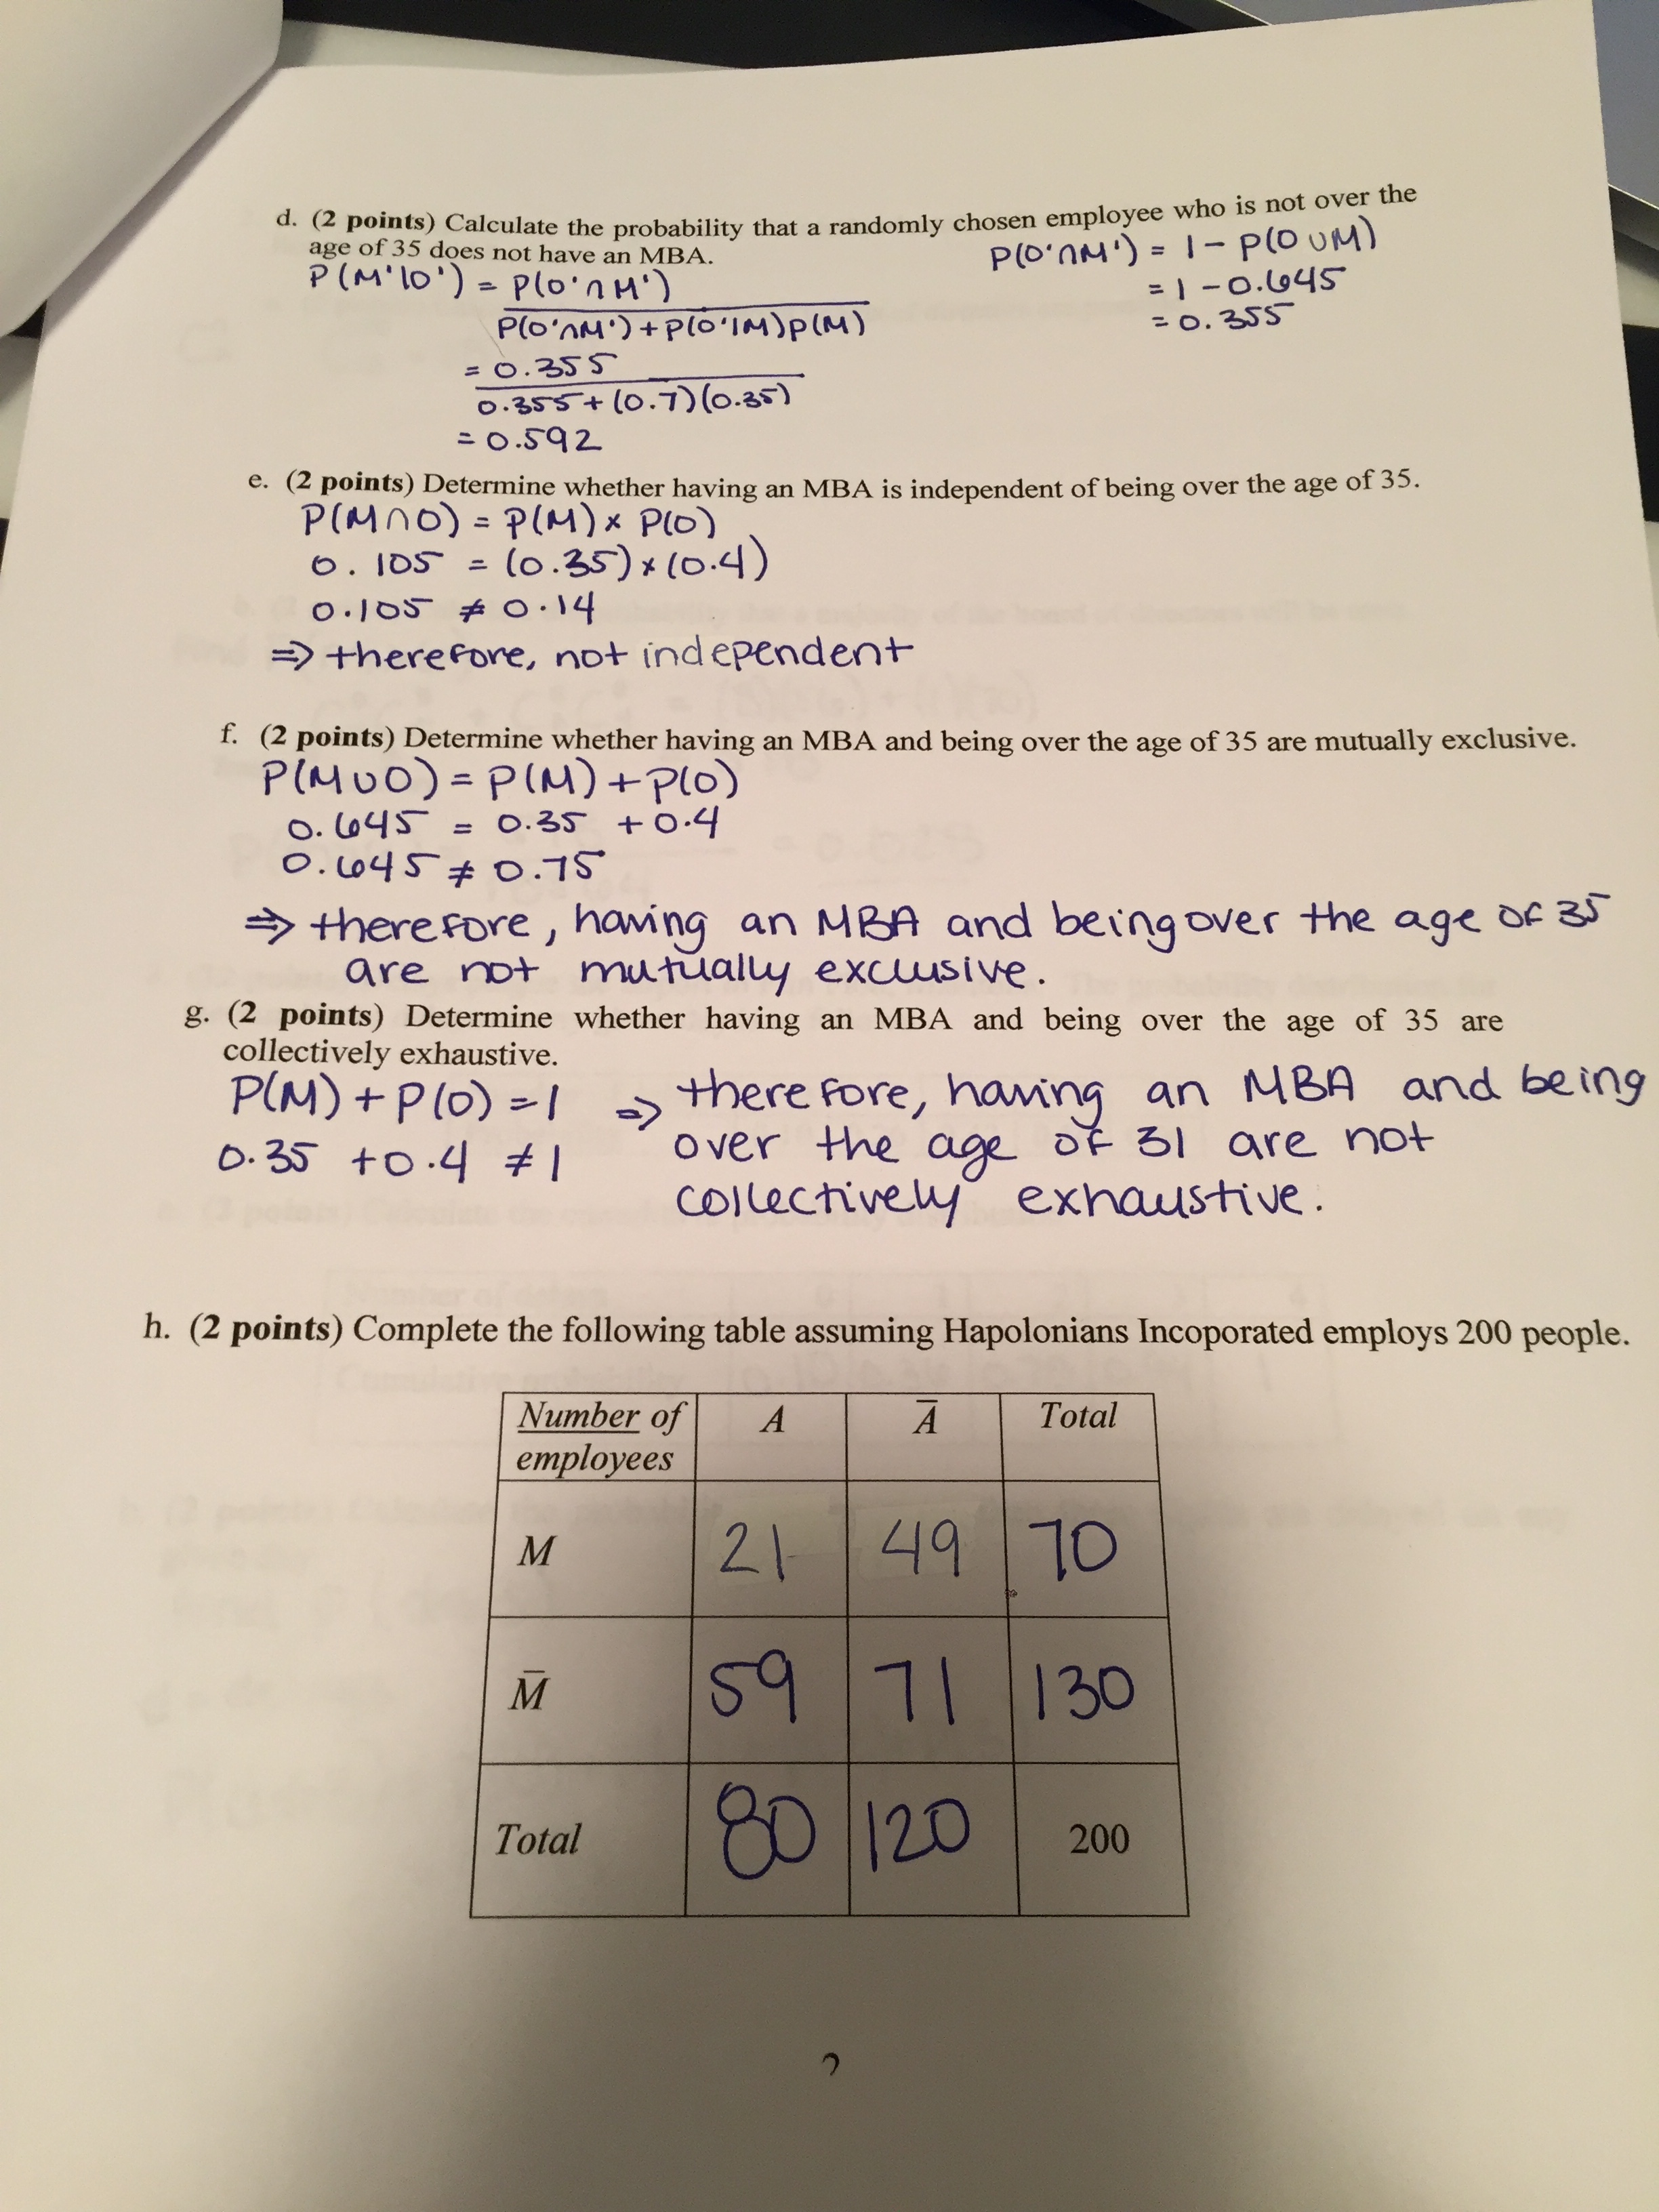 d. (2 points) Calculate the probability that a randomly chosen employee who is not over the
age of 35 does not have an MBA.
P(M'|O') = P(O'∩M')
P(O'∩M') + P(O'|M)P(M)
= 0.355
0.355 + (0.7)(0.35)
= 0.592
P(O'∩M') = 1 - P(O∪M)
= 1 - 0.645
= 0.355
e. (2 points) Determine whether having an MBA is independent of being over the age of 35.
P(M∩O) = P(M) × P(O)
0.105 = (0.35) × (0.4)
0.105 ≠ 0.14
⇒ therefore, not independent
f. (2 points) Determine whether having an MBA and being over the age of 35 are mutually exclusive.
P(M∪O) = P(M) + P(O)
0.645 = 0.35 + 0.4
0.645 ≠ 0.75
⇒ therefore, having an MBA and being over the age of 35
are not mutually exclusive.
g. (2 points) Determine whether having an MBA and being over the age of 35 are
collectively exhaustive.
P(M) + P(O) = 1
0.35 + 0.4 ≠ 1
⇒ therefore, having an MBA and being
over the age of 31 are not
collectively exhaustive.
h. (2 points) Complete the following table assuming Hapolonians Incoporated employs 200 people.
Number of A A̅ Total
employees
M 21 49 70
M̅ 59 71 130
Total 80 120 200